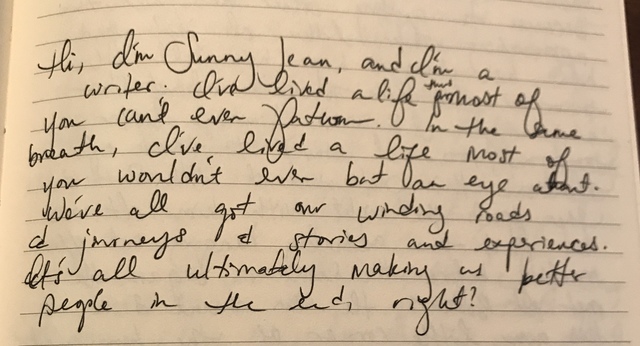 Hi, I'm Sunny Jean, and I'm a
writer. I've lived a life that most of
you can't even fathom. In the same
breath, I've lived a life most of
you wouldn't even bat an eye about.
We've all got our winding roads
& journeys & stories and experiences.
It's all ultimately making us better
people in the end, right?